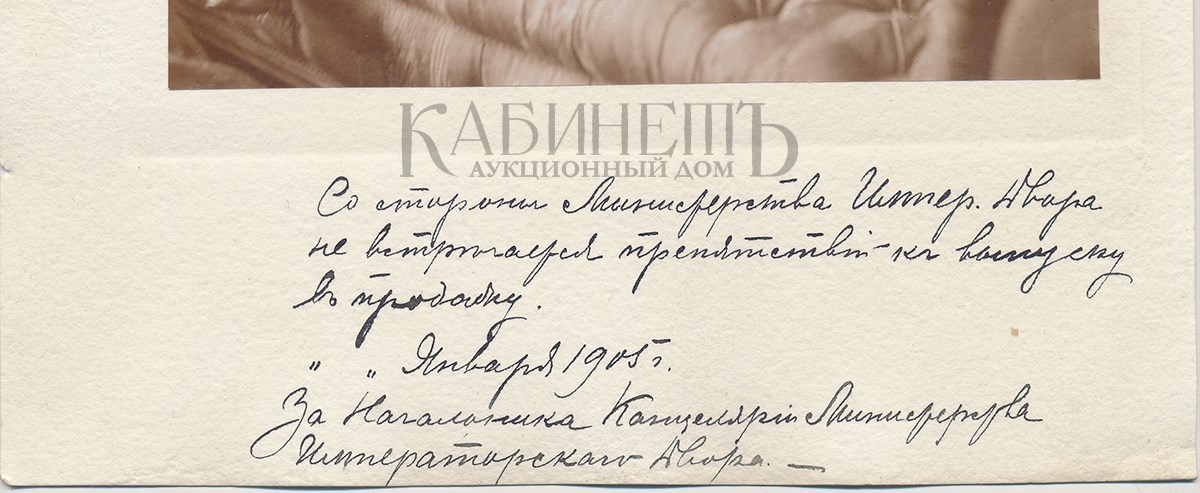 КАБИНЕТЪ
АУКЦИОННЫЙ ДОМ
Со стороны Министерства Импер. Двора
не встрѣчается препятствій къ выпуску
въ продажу.
" " Января 1905 г.
За Начальника Канцеляріи Министерства
Императорскаго Двора. —